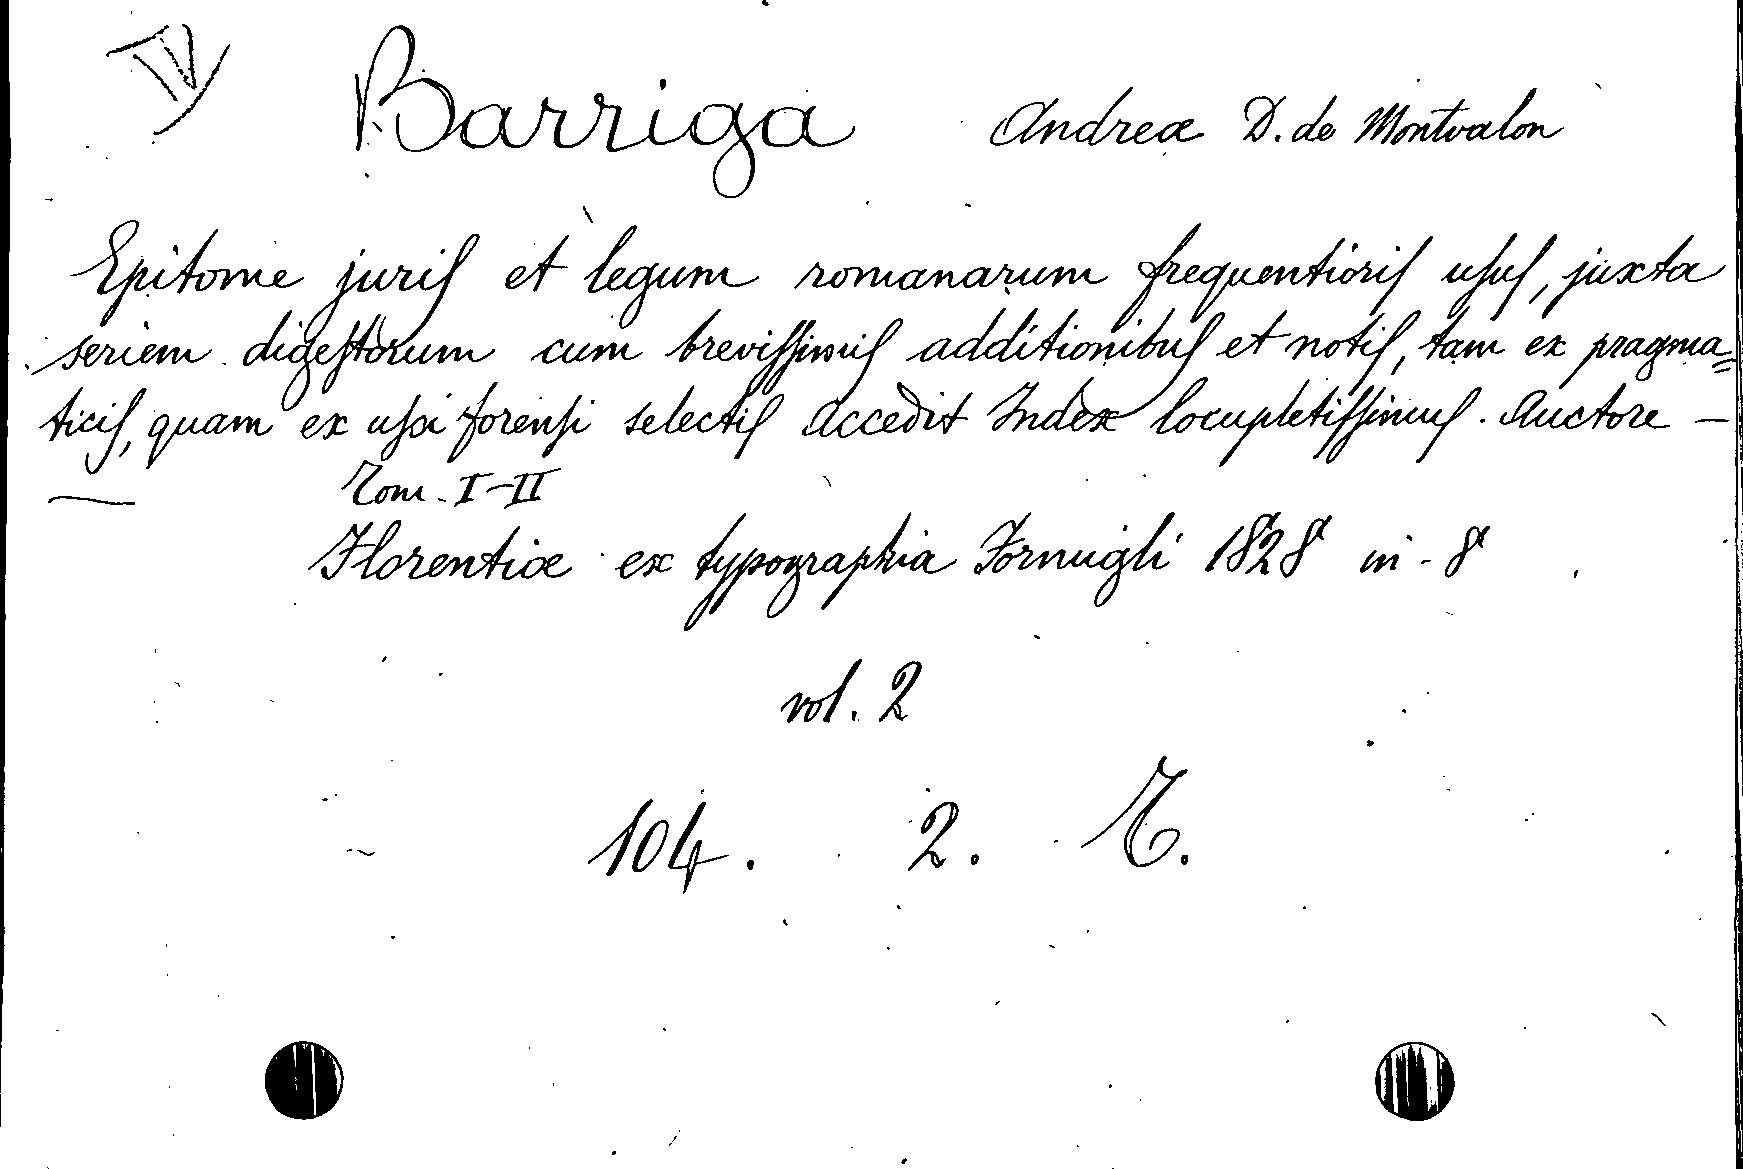 IV
Barriga Andreæ D. de Montvalon
Epitome juris et legum romanarum frequentioris usus, juxta
seriem digestorum cum brevissimis additionibus et notis, tam ex pragma=
ticis, quam ex usu forensi selectis Accedit Index locupletissimus. Auctore —
— Tom. I-II
Florentiæ ex typographia Fornigli 1828 in-8
vol. 2
104. 2. T.